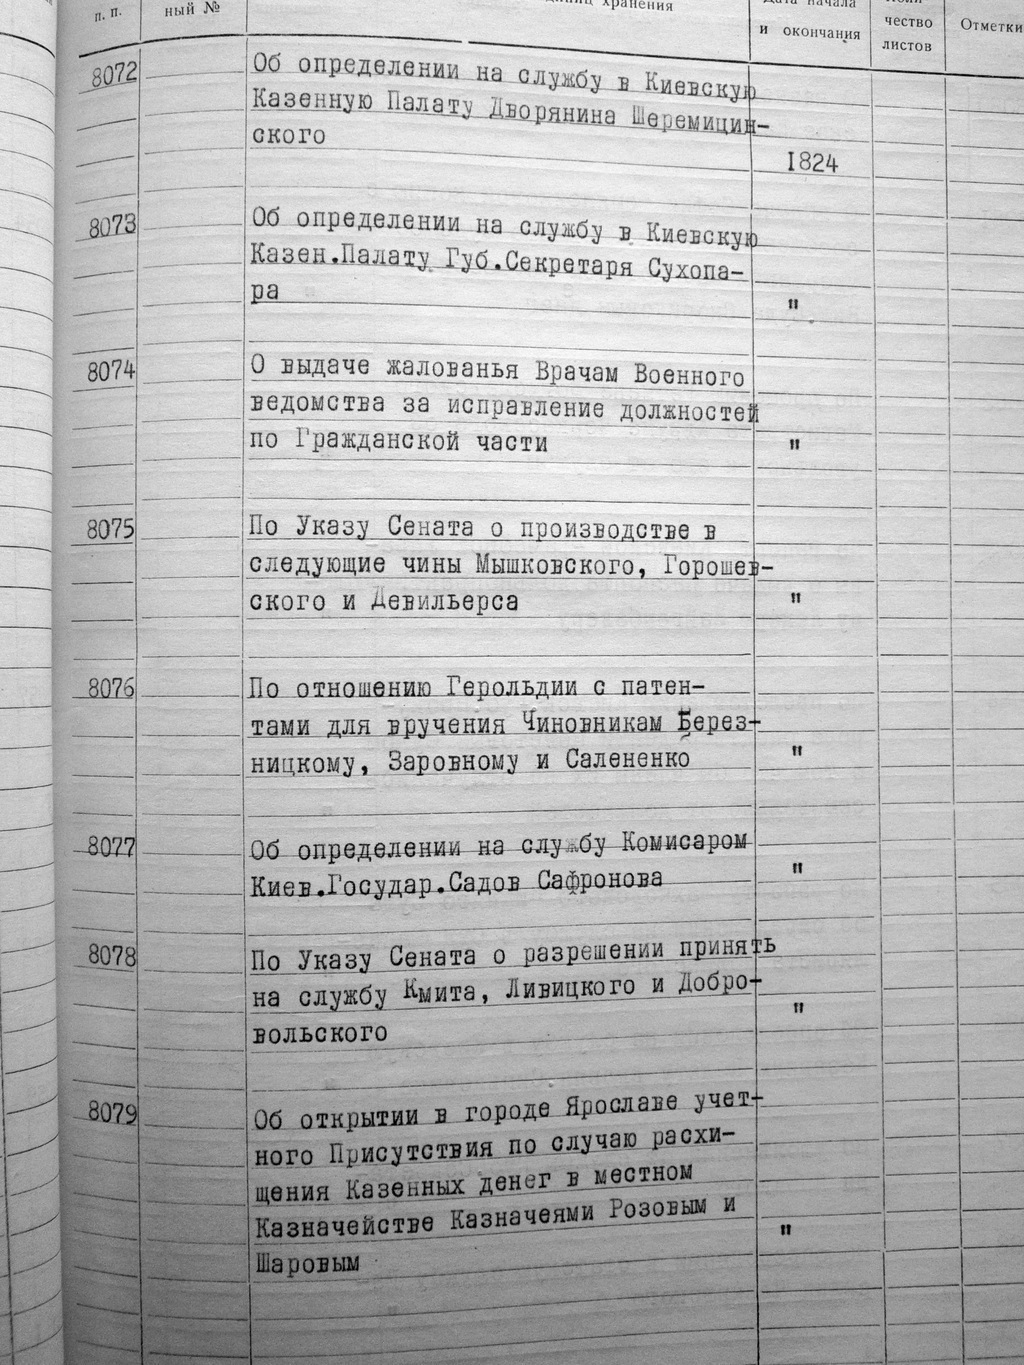 п. п.
ный №
хранения
и окончания
чество
листов
Отметки
8072
Об определении на службу в Киевскую
Казенную Палату Дворянина Шеремицин-
ского
1824
8073
Об определении на службу в Киевскую
Казен.Палату Губ.Секретаря Сухопа-
ра
"
8074
О выдаче жалованья Врачам Военного
ведомства за исправление должностей
по Гражданской части
"
8075
По Указу Сената о производстве в
следующие чины Мышковского, Горошев-
ского и Девильерса
"
8076
По отношению Герольдии с патен-
тами для вручения Чиновникам Берез-
ницкому, Заровному и Салененко
"
8077
Об определении на службу Комисаром
Киев.Государ.Садов Сафронова
"
8078
По Указу Сената о разрешении принять
на службу Кмита, Ливицкого и Добро-
вольского
"
8079
Об открытии в городе Ярославе учет-
ного Присутствия по случаю расхи-
щения Казенных денег в местном
Казначействе Казначеями Розовым и
Шаровым
"